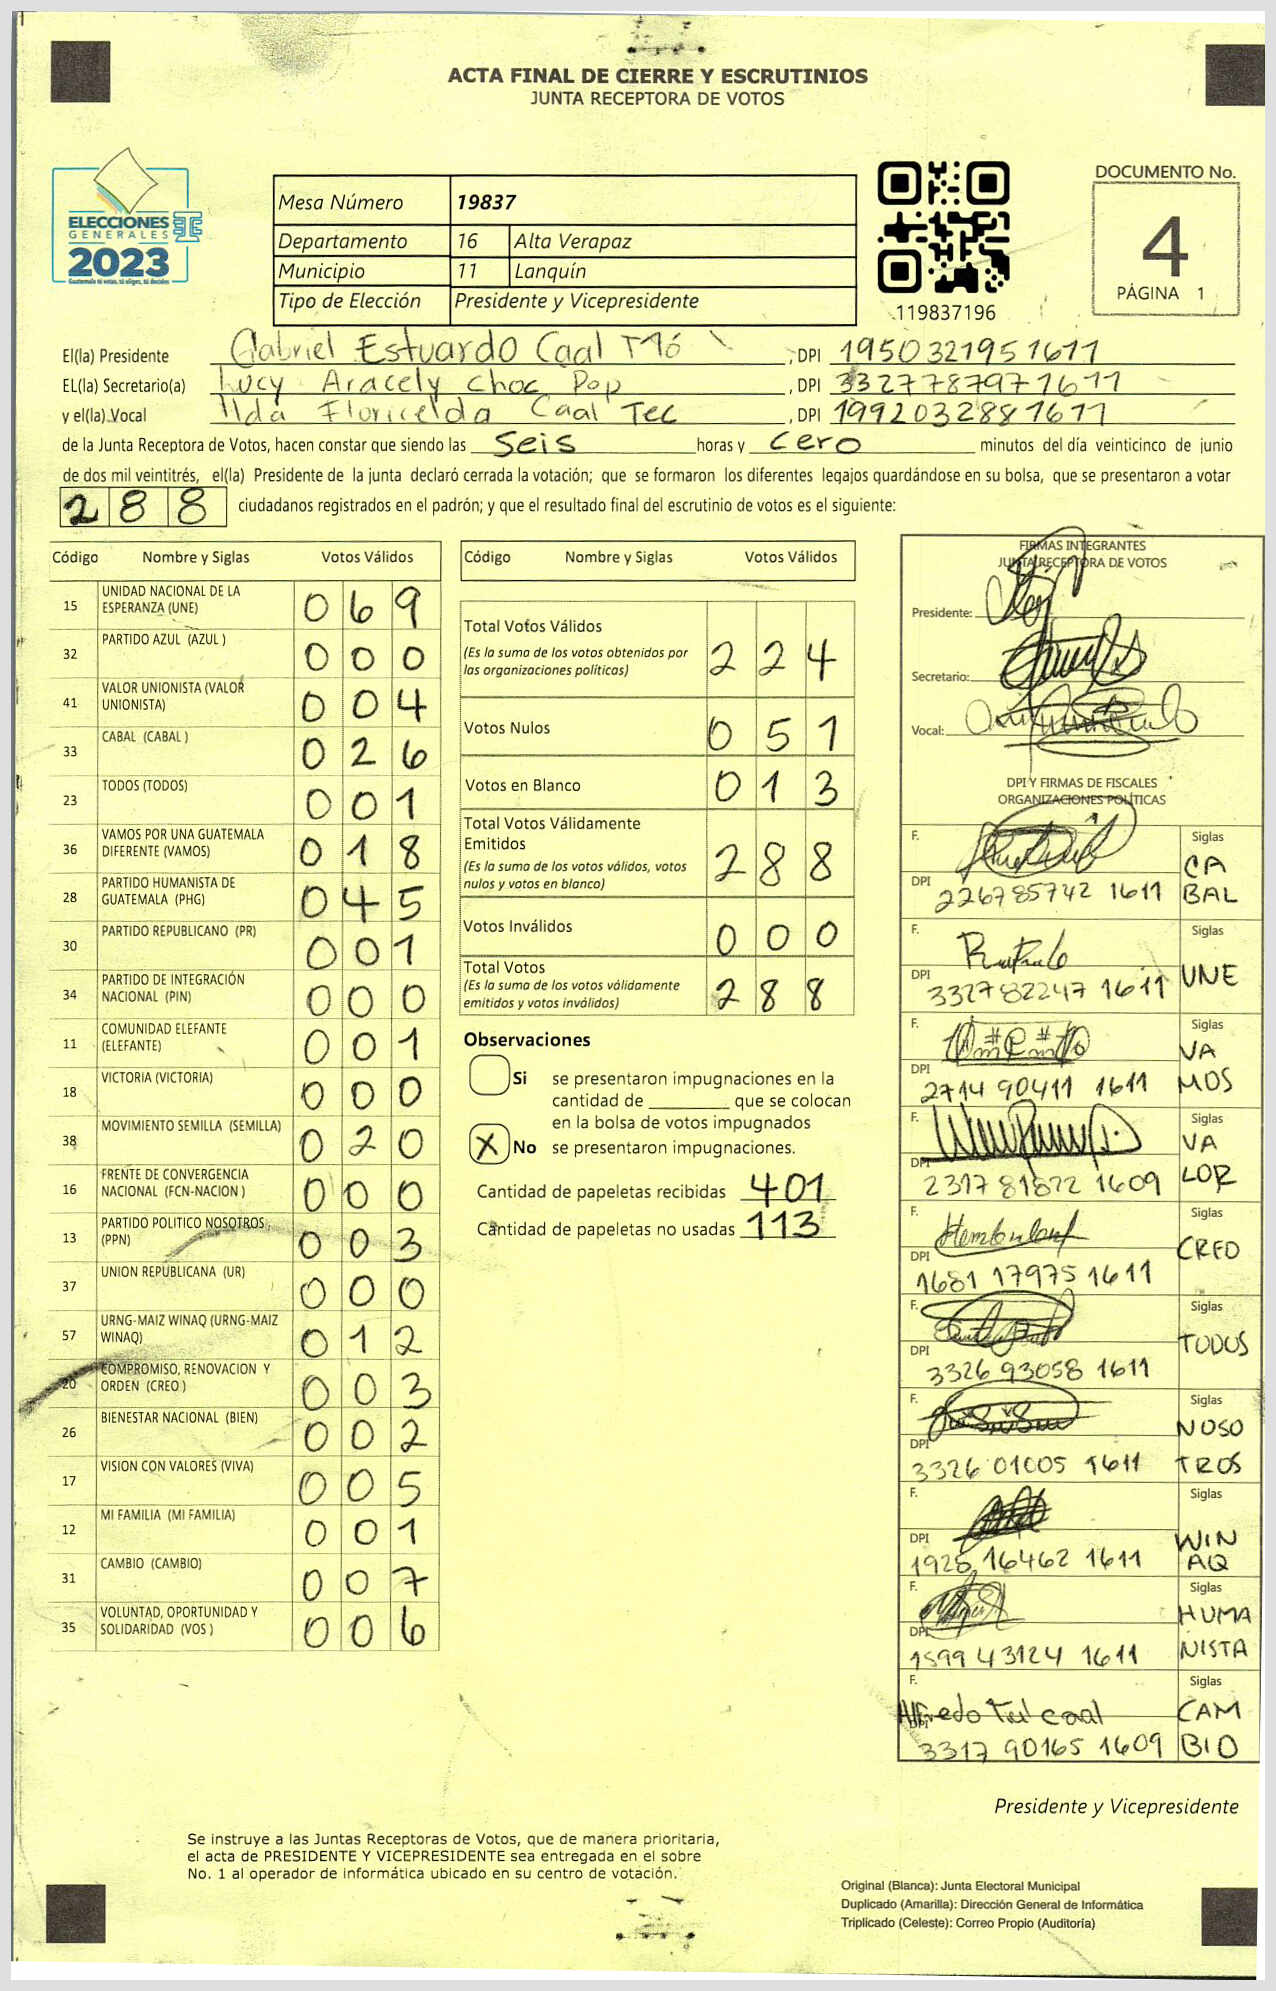 ACTA FINAL DE CIERRE Y ESCRUTINIOS
JUNTA RECEPTORA DE VOTOS
ELECCIONES
GENERALES
2023
Guatemala tú votas, tú eliges, tú decides
Mesa Número 19837
Departamento 16 Alta Verapaz
Municipio 11 Lanquín
Tipo de Elección Presidente y Vicepresidente
119837196
DOCUMENTO No.
4
PÁGINA 1
El(la) Presidente Gabriel Estuardo Caal , DPI 1950321951611
EL(la) Secretario(a) Lucy Aracely Choc Pop , DPI 3327787971611
y el(la) Vocal Ilda Floricelda Caal Tec , DPI 1992032881611
de la Junta Receptora de Votos, hacen constar que siendo las Seis horas y cero minutos del día veinticinco de junio
de dos mil veintitrés, el(la) Presidente de la junta declaró cerrada la votación; que se formaron los diferentes legajos guardándose en su bolsa, que se presentaron a votar
288 ciudadanos registrados en el padrón; y que el resultado final del escrutinio de votos es el siguiente:
Código Nombre y Siglas Votos Válidos
15 UNIDAD NACIONAL DE LA ESPERANZA (UNE) 069
32 PARTIDO AZUL (AZUL ) 000
41 VALOR UNIONISTA (VALOR UNIONISTA) 004
33 CABAL (CABAL ) 026
23 TODOS (TODOS) 001
36 VAMOS POR UNA GUATEMALA DIFERENTE (VAMOS) 018
28 PARTIDO HUMANISTA DE GUATEMALA (PHG) 045
30 PARTIDO REPUBLICANO (PR) 001
34 PARTIDO DE INTEGRACIÓN NACIONAL (PIN) 000
11 COMUNIDAD ELEFANTE (ELEFANTE) 001
18 VICTORIA (VICTORIA) 000
38 MOVIMIENTO SEMILLA (SEMILLA) 020
16 FRENTE DE CONVERGENCIA NACIONAL (FCN-NACION ) 000
13 PARTIDO POLITICO NOSOTROS (PPN) 003
37 UNION REPUBLICANA (UR) 000
57 URNG-MAIZ WINAQ (URNG-MAIZ WINAQ) 012
20 COMPROMISO, RENOVACION Y ORDEN (CREO ) 003
26 BIENESTAR NACIONAL (BIEN) 002
17 VISION CON VALORES (VIVA) 005
12 MI FAMILIA (MI FAMILIA) 001
31 CAMBIO (CAMBIO) 007
35 VOLUNTAD, OPORTUNIDAD Y SOLIDARIDAD (VOS ) 006
Código Nombre y Siglas Votos Válidos
Total Votos Válidos 224
(Es la suma de los votos obtenidos por
las organizaciones políticas)
Votos Nulos 051
Votos en Blanco 013
Total Votos Válidamente
Emitidos 288
(Es la suma de los votos válidos, votos
nulos y votos en blanco)
Votos Inválidos 000
Total Votos 288
(Es la suma de los votos válidamente
emitidos y votos inválidos)
Observaciones
Si se presentaron impugnaciones en la
cantidad de ________ que se colocan
en la bolsa de votos impugnados
X No se presentaron impugnaciones.
Cantidad de papeletas recibidas 401
Cantidad de papeletas no usadas 113
FIRMAS INTEGRANTES
JUNTA RECEPTORA DE VOTOS
Presidente:
Secretario:
Vocal:
DPI Y FIRMAS DE FISCALES
ORGANIZACIONES POLÍTICAS
F. Siglas
DPI 226785742 1611 CA BAL
F. Siglas
DPI 332782247 1611 UNE
F. Siglas
DPI 2714 90411 1611 VA MOS
F. Siglas
DPI 2317 81822 1609 VA LOR
F. Siglas
DPI 1681 17975 1611 CREO
F. Siglas
DPI 3326 93058 1611 TODOS
F. Siglas
DPI 3326 01005 1611 NOSO TROS
F. Siglas
DPI 1925 16462 1611 WIN AQ
F. Siglas
DPI 1599 43124 1611 HUMA NISTA
F. Siglas
Alfredo Tul caal
DPI 3317 90165 1609 CAM BIO
Presidente y Vicepresidente
Se instruye a las Juntas Receptoras de Votos, que de manera prioritaria,
el acta de PRESIDENTE Y VICEPRESIDENTE sea entregada en el sobre
No. 1 al operador de informática ubicado en su centro de votación.
Original (Blanca): Junta Electoral Municipal
Duplicado (Amarilla): Dirección General de Informática
Triplicado (Celeste): Correo Propio (Auditoría)